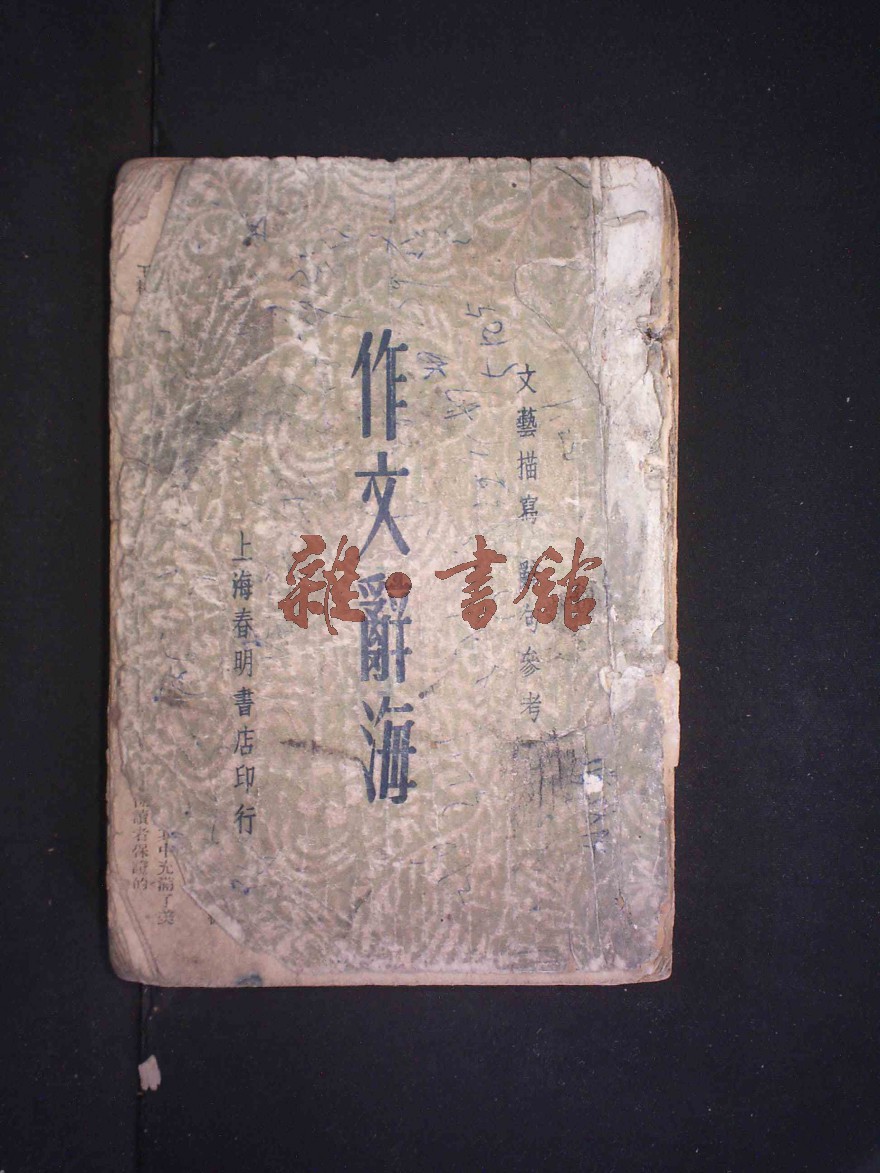 文藝描寫 辭句參考
作文辭海
上海春明書店印行
雜·書館
中充滿了
讀者保證的